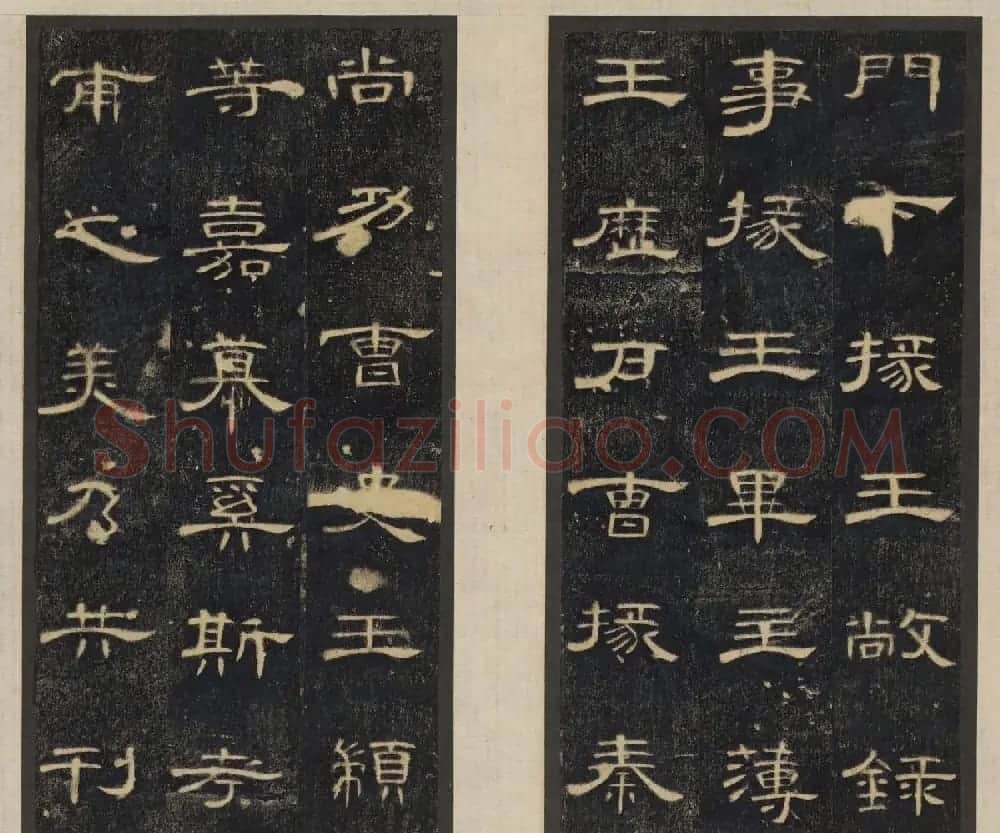 門下掾王敞録
事掾王畢主薄
王歷户曹掾秦
尚功曹史王顓
等嘉慕奚斯考
甫之美乃共刊
Shufaziliao.COM